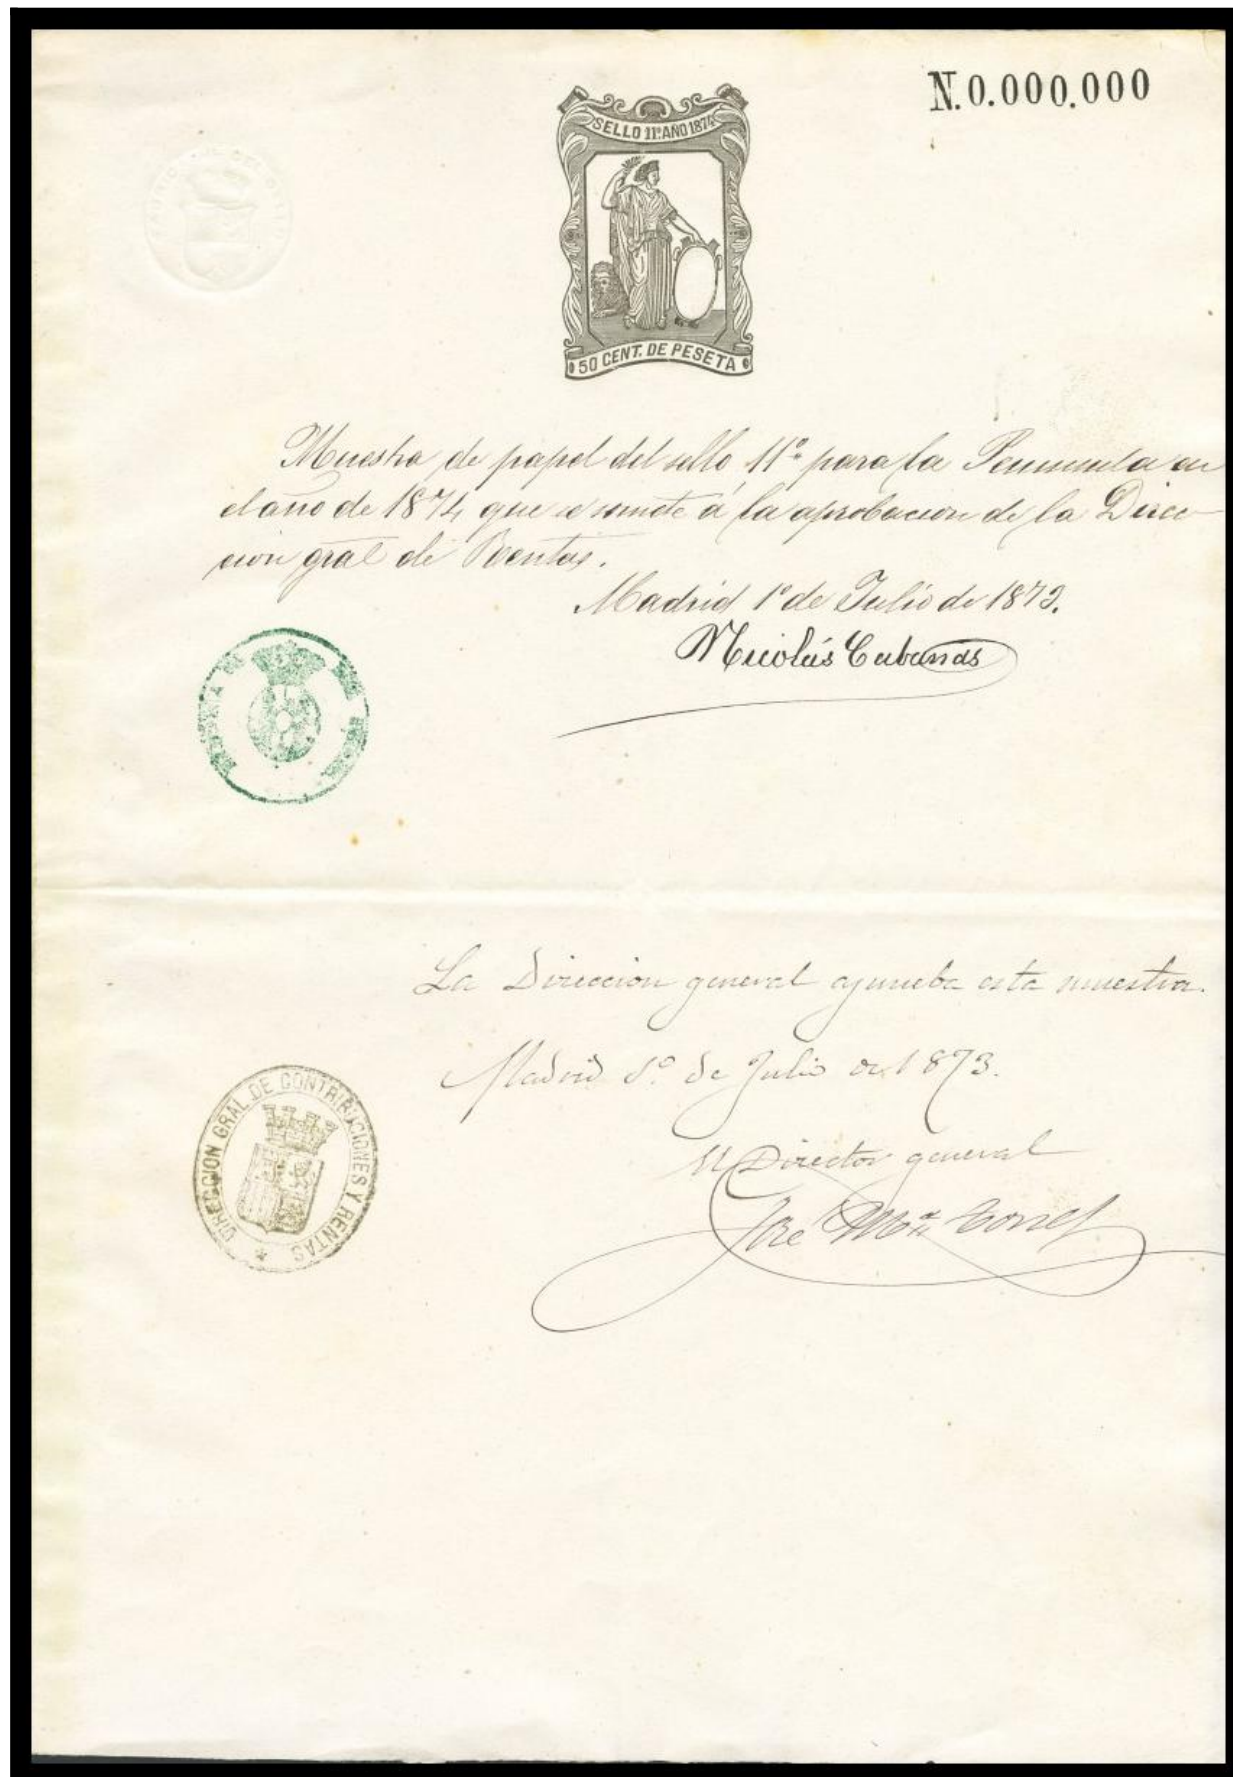 N.0.000,000
SELLO 11º AÑO 1874
50 CENT. DE PESETA
Muestra de papel del sello 11º para la Peninsula en
el año de 1874 que se remite á la aprobacion de la Direc-
cion gral de Rentas.
Madrid 1º de Julio de 1873.
Nicolás Cabanas
La Direccion general aprueba esta muestra.
Madrid 1º de Julio de 1873.
El Director general
José Mª Torres
DIRECCION GRAL DE CONTRIBUCIONES Y RENTAS